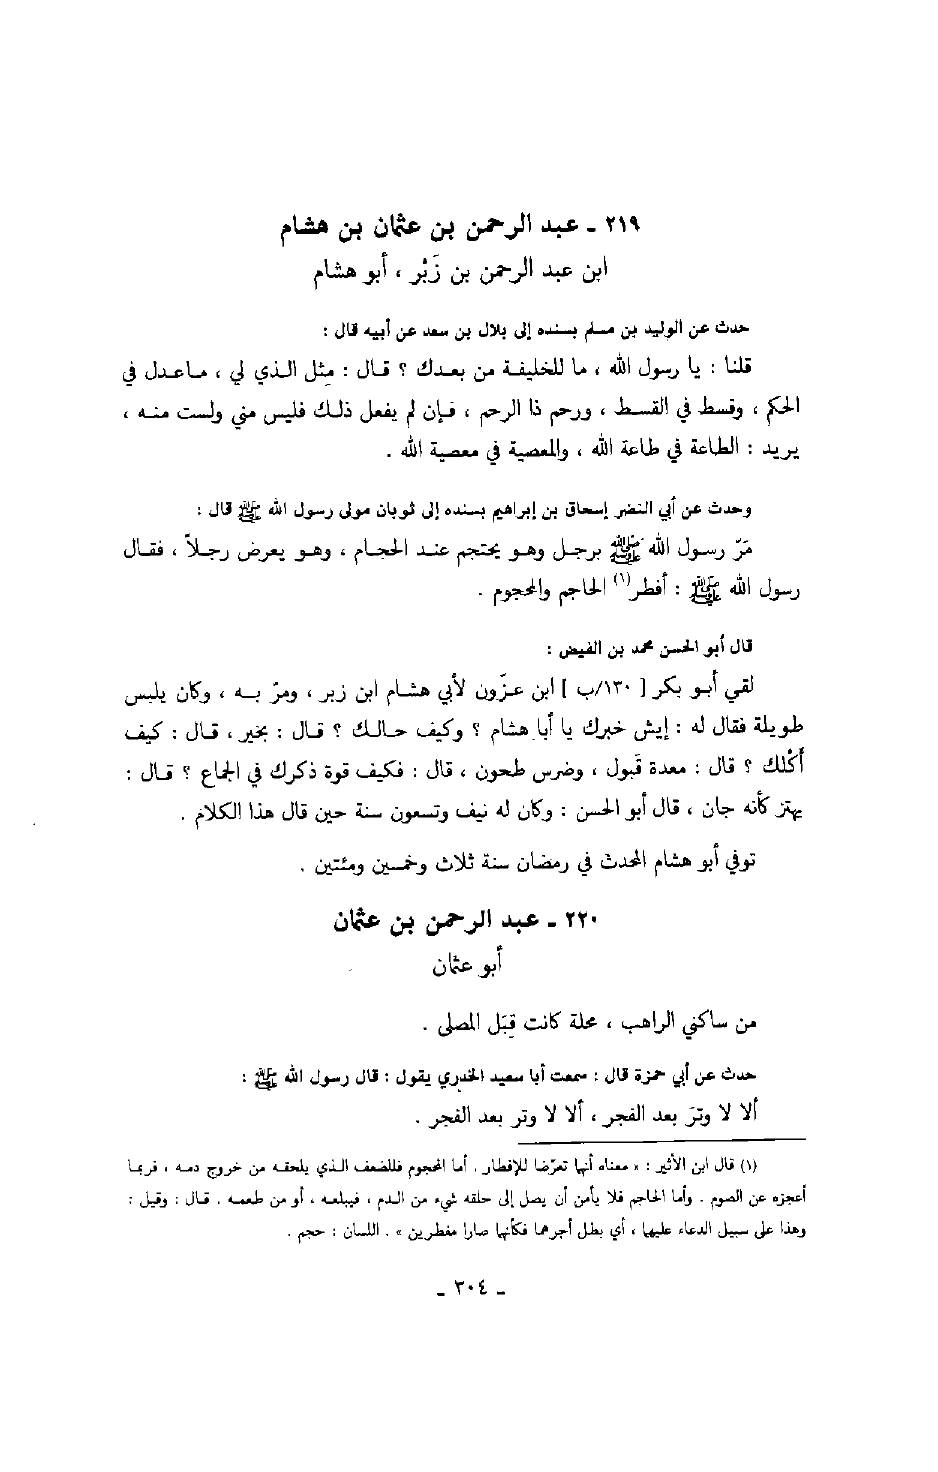 ٢١٩ ـ عبد الرحمن بن عثمان بن هشام
ابن عبد الرحمن بن زَبْر ، أبو هشام
حدث عن الوليد بن مسلم بسنده إلى بلال بن سعد عن أبيه قال :
قلنا : يا رسول الله ، ما للخليفة من بعدك ؟ قال : مثل الذي لي ، ماعدل في
الحكم ، وقسط في القسط ، ورحم ذا الرحم ، فإن لم يفعل ذلك فليس مني ولست منه ،
يريد : الطاعة في طاعة الله ، والمعصية في معصية الله .
وحدث عن أبي النضر إسحاق بن إبراهيم بسنده إلى ثوبان مولى رسول الله ﷺ قال :
مَرّ رسول الله ﷺ برجل وهو يحتجم عند الحجام ، وهو يعرض رجلاً ، فقال
رسول الله ﷺ : أفطر(١) الحاجم والمحجوم .
قال أبو الحسن محمد بن الفيض :
لقي أبو بكر [ ١٣٠/ب ] ابن عزّون لأبي هشام ابن زبر ، ومرّ به ، وكان يلبس
طويلة فقال له : إيش خبرك يا أبا هشام ؟ وكيف حالك ؟ قال : بخير ، قال : كيف
أكْلك ؟ قال : معدة قَبول ، وضرس طحون ، قال : فكيف قوة ذكرك في الجماع ؟ قال :
يهتز كأنه جان ، قال أبو الحسن : وكان له نيف وتسعون سنة حين قال هذا الكلام .
توفي أبو هشام المحدث في رمضان سنة ثلاث وخمسين ومئتين .
٢٢٠ ـ عبد الرحمن بن عثمان
أبو عثمان
من ساكني الراهب ، محلة كانت قِبَل المصلى .
حدث عن أبي حمزة قال : سمعت أبا سعيد الخدري يقول : قال رسول الله ﷺ :
ألا لا وترَ بعد الفجر ، ألا لا وتر بعد الفجر .
(١) قال ابن الأثير : « معناه أنها تعرّضا للإفطار . أما المحجوم فللضعف الذي يلحقه من خروج دمه ، فربما
أعجزه عن الصوم . وأما الحاجم فلا يأمن أن يصل إلى حلقه شيء من الدم ، فيبلعه ، أو من طعمه . قال : وقيل :
وهذا على سبيل الدعاء عليها ، أي بطل أجرهما فكأنها صارا مفطرين » . اللسان : حجم .
ـ ٣٠٤ ـ